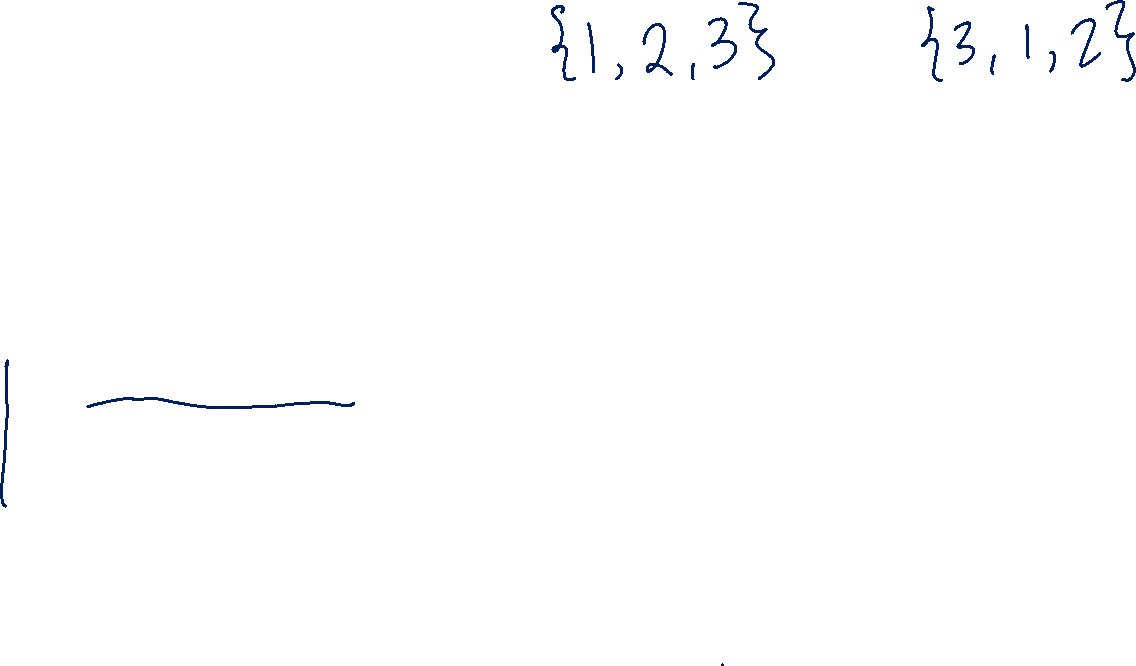 {1, 2, 3} {3, 1, 2}